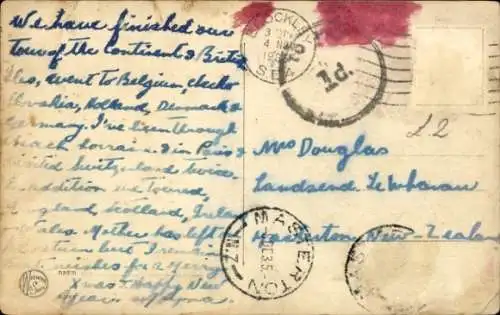 We have finished our
tour of the continent & British
Isles, went to Belgium, checko
slovakia, Holland, Denmark &
Germany. I've been through
Lorraine & in Paris &
visited Switzerland twice.
In addition we toured,
England, Scotland, Ireland
Wales. Mother has left
but I remain
wishes for a Merry
Xmas & Happy New
Year
BROCKLEY
4 NO
S.E.4
1d.
£2
Mrs Douglas
Landsend Te Wharau
Masterton New-Zealand
MASTERTON
N.Z